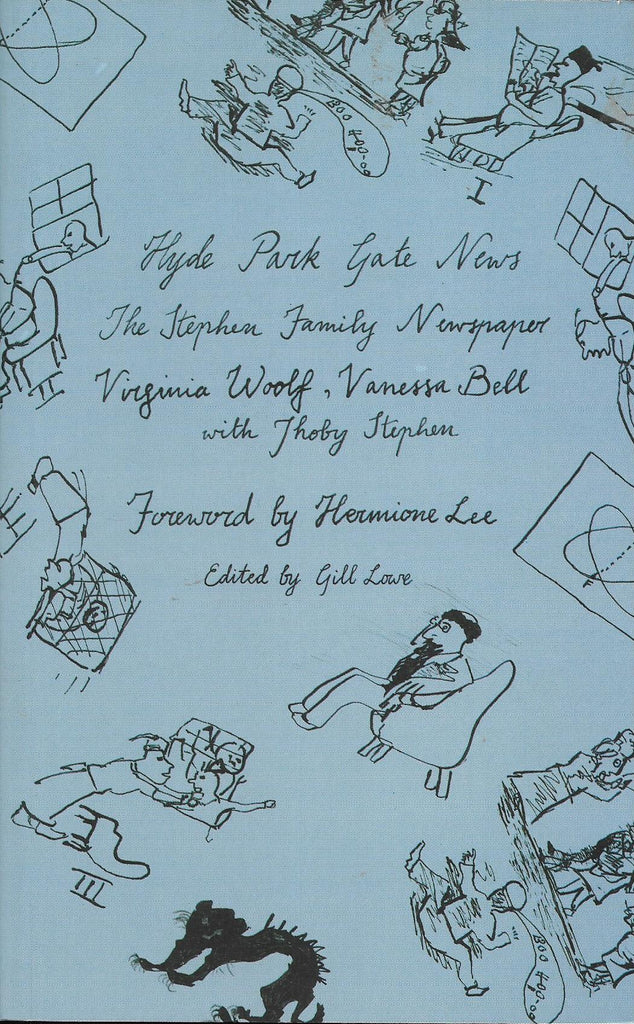 BOO HOO-OO
I
Hyde Park Gate News
The Stephen Family Newspaper
Virginia Woolf, Vanessa Bell
with Thoby Stephen
II
Foreword by Hermione Lee
II
Edited by Gill Lowe
III
BOO HOO-OO